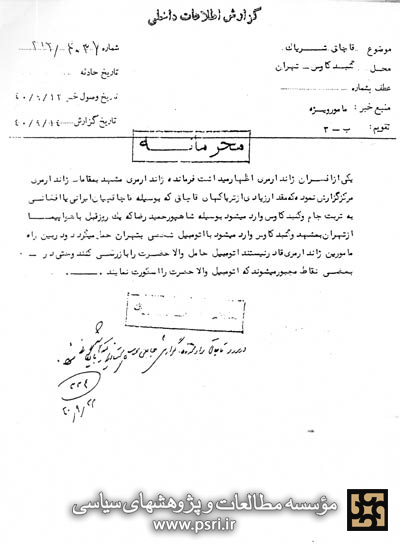 گزارش اطلاعات داخلی
موضوع قاچاق تریاک شماره
محل گنبد کاوس – تهران تاریخ حادثه
عطف بشماره تاریخ وصول خبر ۴۰/۹/۱۲
منبع خبر: مامور ویژه
تقویم: ب – ۳ تاریخ گزارش ۴۰/۹/۱۴
محرمانه
یکی از افسران ژاندارمری اظهار میداشت فرمانده ژاندارمری مشهد بمقامات ژاندارمری
مرکز گزارش نموده که مقدار زیادی از تریاکهای قاچاق که بوسیله قاچاقچیان ایرانی یا افغانی
به تربت جام و گنبد کاوس وارد میشود بوسیله شاهپور حمیدرضا که یک روز قبل با هواپیما
از تهران بمشهد و گنبد کاوس وارد میشود با اتومبیل شخصی بتهران حمل میگردد و در بین راه
مامورین ژاندارمری قادر نیستند اتومبیل حامل والاحضرت را بازرسی کنند و حتی در ــ
بعضی نقاط مجبور میشوند که اتومبیل والاحضرت را اسکورت نمایند
۲۲۹
۴۰/۹/۲۲
مؤسسه مطالعات و پژوهشهای سیاسی
www.psri.ir